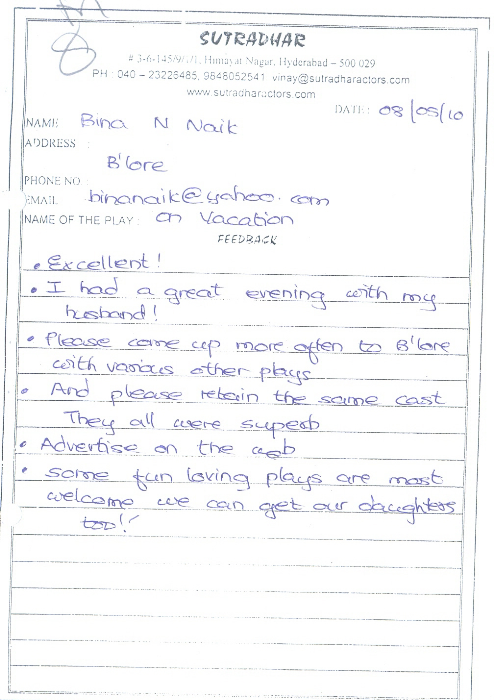 SUTRADHAR
# 3-6-145/9/1/1, Himayat Nagar, Hyderabad – 500 029
PH : 040 – 23226485, 9848052541 vinay@sutradharactors.com
www.sutradharactors.com
DATE : 08/05/10
NAME : Bina N Naik
ADDRESS :
B'lore
PHONE NO :
EMAIL : binanaik@yahoo.com
NAME OF THE PLAY : On Vacation
FEEDBACK
• Excellent!
• I had a great evening with my
husband!
• Please come up more often to B'lore
with various other plays
• And please retain the same cast
They all were superb
• Advertise on the web
• Some fun loving plays are most
welcome we can get our daughters
too!!